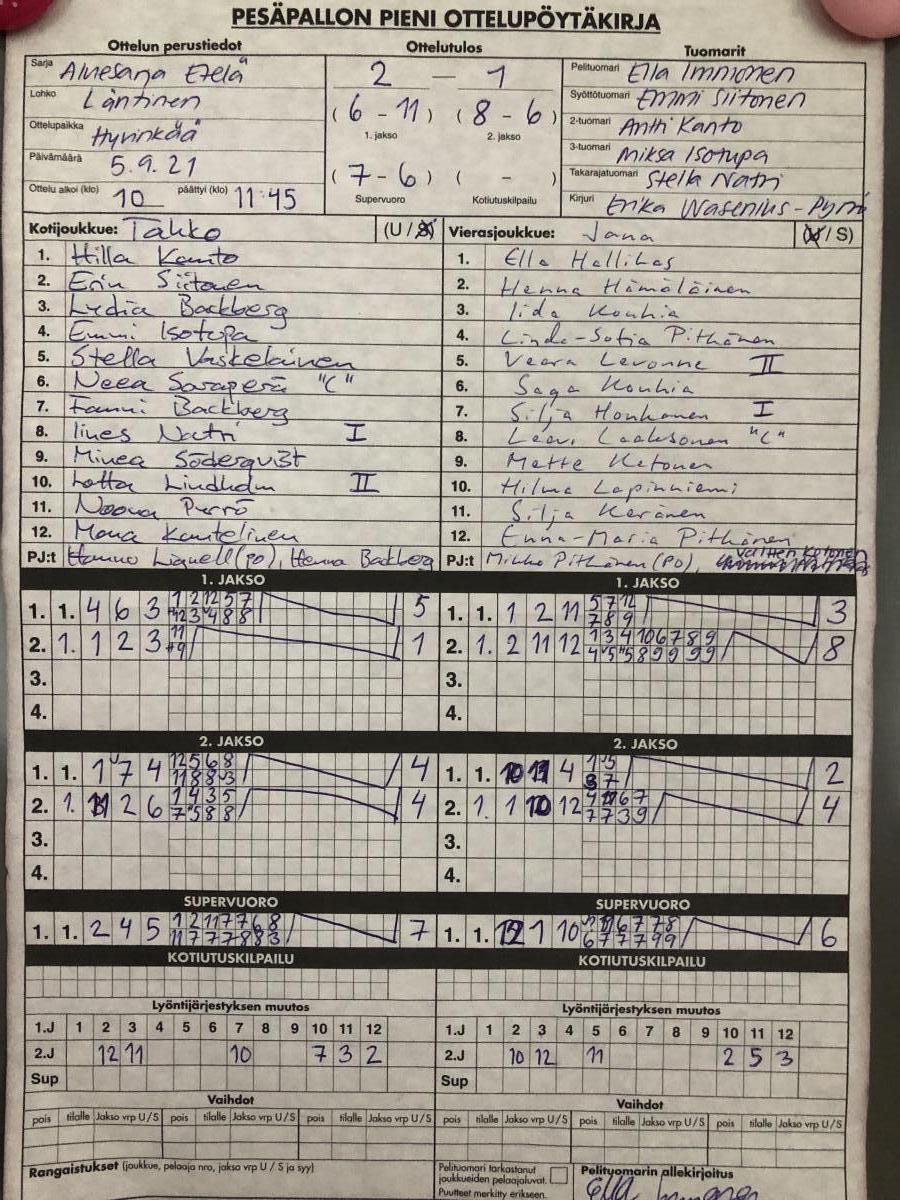 PESÄPALLON PIENI OTTELUPÖYTÄKIRJA
Ottelun perustiedot Ottelutulos Tuomarit
Sarja Aluesarja Etelä
Lohko Läntinen
Ottelupaikka Hyvinkää
Päivämäärä 5.9.21
Ottelu alkoi (klo) 10 päättyi (klo) 11:45
2 — 1
(6 - 11) (8 - 6)
1. jakso 2. jakso
(7 - 6) ( - )
Supervuoro Kotiutuskilpailu
Pelituomari Ella Immonen
Syöttötuomari Emmi Siitonen
2-tuomari Antti Kanto
3-tuomari Miksa Isotupa
Takarajatuomari Stella Natri
Kirjuri Erika Wasenius-Pyrrö
Kotijoukkue: Tahko (U / S)
1. Hilla Kanto
2. Erin Siitonen
3. Lydia Backberg
4. Emmi Isotupa
5. Stella Vaskelainen
6. Neea Saraperä "C"
7. Fanni Backberg
8. Iines Natri I
9. Minea Söderqvist
10. Lotta Lindholm II
11. Noora Purrö
12. Mona Kantelinen
PJ:t Hannu Liquell (PO), Henna Backberg
Vierasjoukkue: Jana (U / S)
1. Ella Hallikas
2. Henna Hämäläinen
3. Iida Kouhia
4. Linda-Sofia Pitkänen
5. Veera Levonne II
6. Saga Kouhia
7. Silja Honkanen I
8. Leevi Laaksonen "C"
9. Mette Ketonen
10. Hilma Lapinniemi
11. Silja Keränen
12. Enna-Maria Pitkänen
PJ:t Mikko Pitkänen (PO), Valtteri Ketonen
1. JAKSO
1. 1. 4 6 3 1 2 12 5 7 5
2. 1. 1 2 3 11 1
3.
4.
1. JAKSO
1. 1. 1 2 11 5 7 12 3
7 8 9
2. 1. 2 11 12 1 3 4 10 6 7 8 9 8
3.
4.
2. JAKSO
1. 1. 1 7 4 12 5 6 8 4
2. 1. 11 2 6 1 4 3 5 4
7 5 8 8
3.
4.
2. JAKSO
1. 1. 10 11 4 1 5 2
8 7
2. 1. 1 10 12 4 11 6 7 4
7 7 3 9
3.
4.
SUPERVUORO
1. 1. 2 4 5 1 2 11 7 7 6 8 7
11 7 7 7 8 8 3
SUPERVUORO
1. 1. 12 1 10 5 11 6 7 7 8 6
6 7 7 7 9 9
KOTIUTUSKILPAILU
KOTIUTUSKILPAILU
Lyöntijärjestyksen muutos
1.J 1 2 3 4 5 6 7 8 9 10 11 12
2.J 12 11 10 7 3 2
Sup
Lyöntijärjestyksen muutos
1.J 1 2 3 4 5 6 7 8 9 10 11 12
2.J 10 12 11 2 5 3
Sup
Vaihdot
pois tilalle Jakso vrp U/S pois tilalle Jakso vrp U/S pois tilalle Jakso vrp U/S
Vaihdot
pois tilalle Jakso vrp U/S pois tilalle Jakso vrp U/S pois tilalle Jakso vrp U/S
Rangaistukset (joukkue, pelaaja nro, jakso vrp U / S ja syy)
Pelituomari tarkastanut
joukkueiden pelaajaluvat.
Puutteet merkitty erikseen.
Pelituomarin allekirjoitus
Ella Immonen